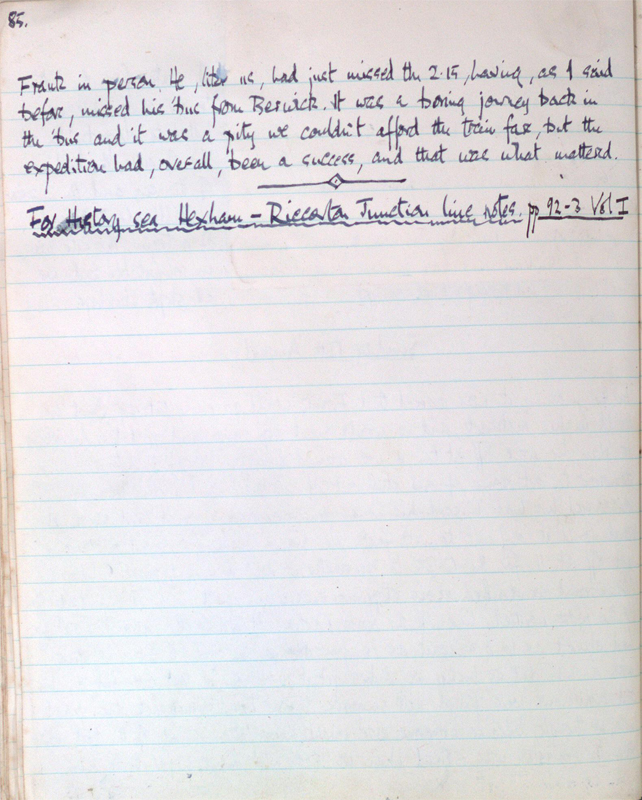 85.
Frank in person. He, like us, had just missed the 2.15, having, as I said
before, missed his 'bus from Berwick. It was a boring journey back in
the 'bus and it was a pity we couldn't afford the train fare, but the
expedition had, overall, been a success, and that was what mattered.
For History see Hexham - Riccarton Junction line notes. pp 92-3 Vol I